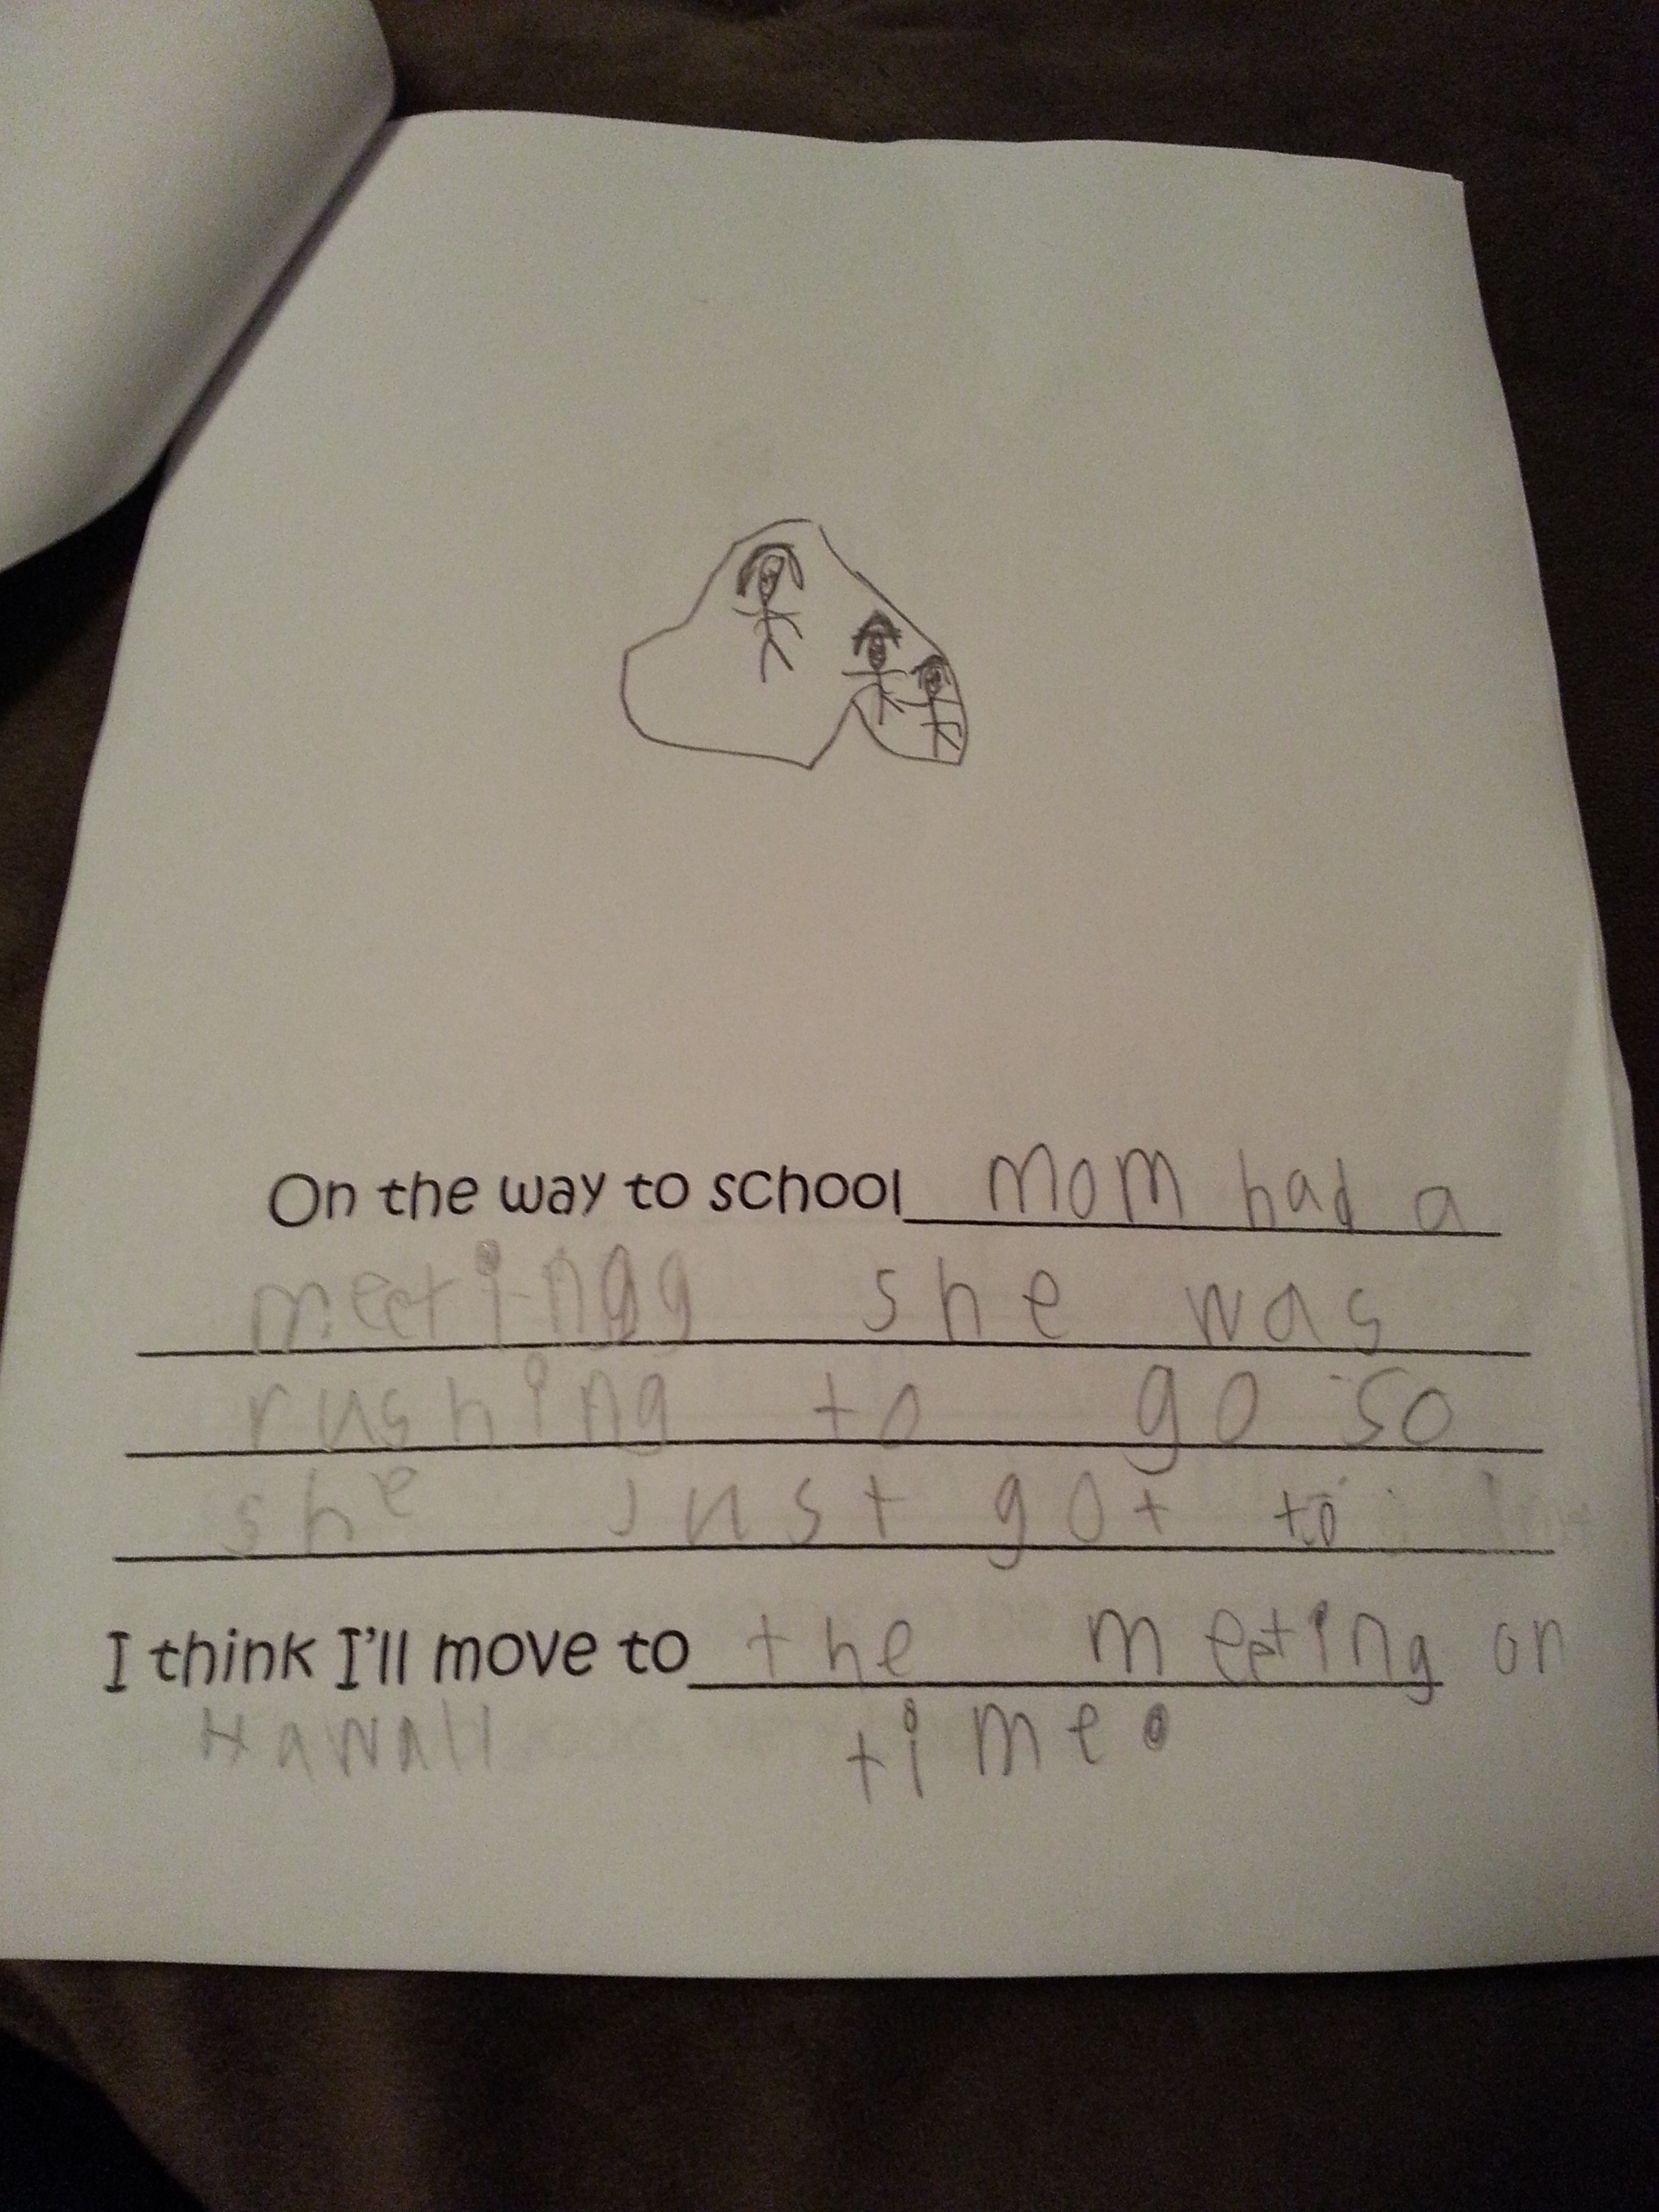 On the way to school mom had a
meetingg she was
rushing to go so
she just got to
I think I'll move to the meeting on
Hawaii time.